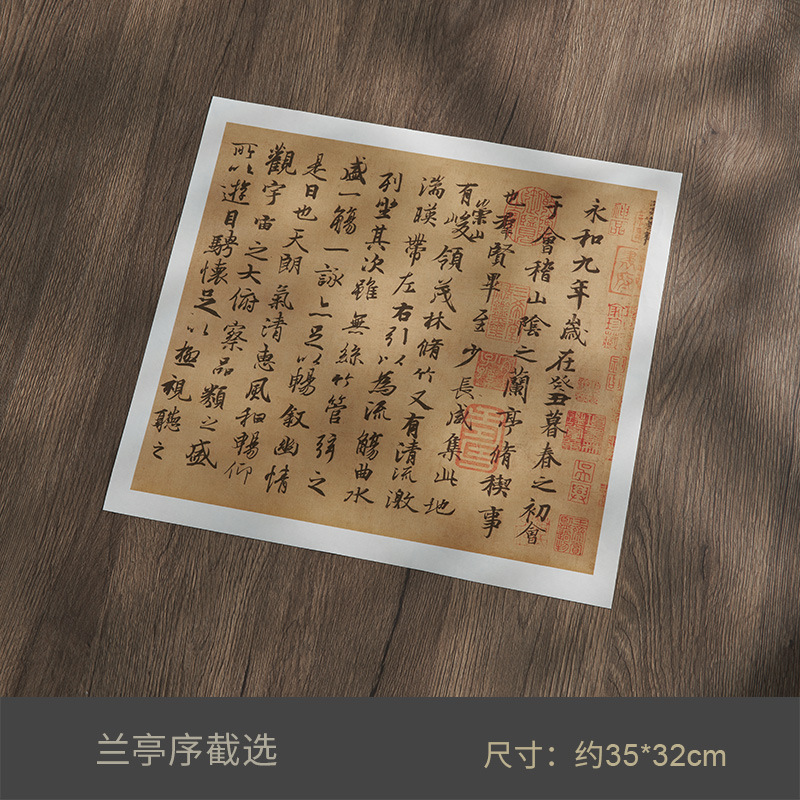 永和九年歲在癸丑暮春之初會
于會稽山陰之蘭亭脩稧事
也羣賢畢至少長咸集此地
有崇山峻領茂林脩竹又有清流激
湍暎帶左右引以為流觴曲水
列坐其次雖無絲竹管弦之
盛一觴一詠亦足以暢叙幽情
是日也天朗氣清惠風和暢仰
觀宇宙之大俯察品類之盛
所以遊目騁懷足以極視聽之
兰亭序截选
尺寸：约35*32cm